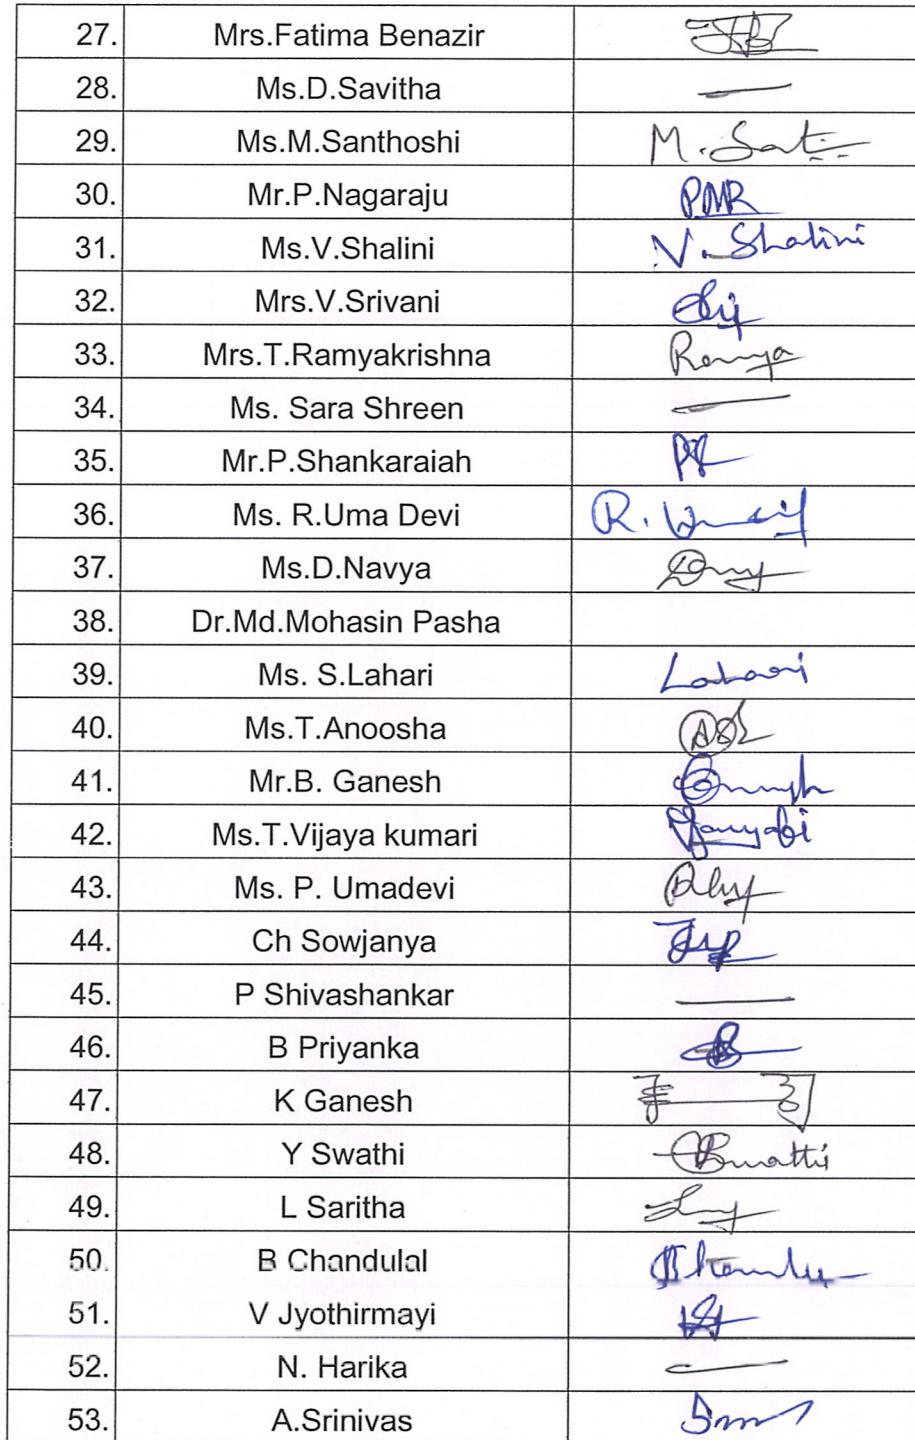 27. Mrs.Fatima Benazir
28. Ms.D.Savitha
29. Ms.M.Santhoshi M.
30. Mr.P.Nagaraju PNR
31. Ms.V.Shalini V. Shalini
32. Mrs.V.Srivani
33. Mrs.T.Ramyakrishna Ramya
34. Ms. Sara Shreen
35. Mr.P.Shankaraiah
36. Ms. R.Uma Devi R.
37. Ms.D.Navya
38. Dr.Md.Mohasin Pasha
39. Ms. S.Lahari Lahari
40. Ms.T.Anoosha
41. Mr.B. Ganesh
42. Ms.T.Vijaya kumari
43. Ms. P. Umadevi
44. Ch Sowjanya
45. P Shivashankar
46. B Priyanka
47. K Ganesh
48. Y Swathi
49. L Saritha
50. B Chandulal
51. V Jyothirmayi
52. N. Harika
53. A.Srinivas